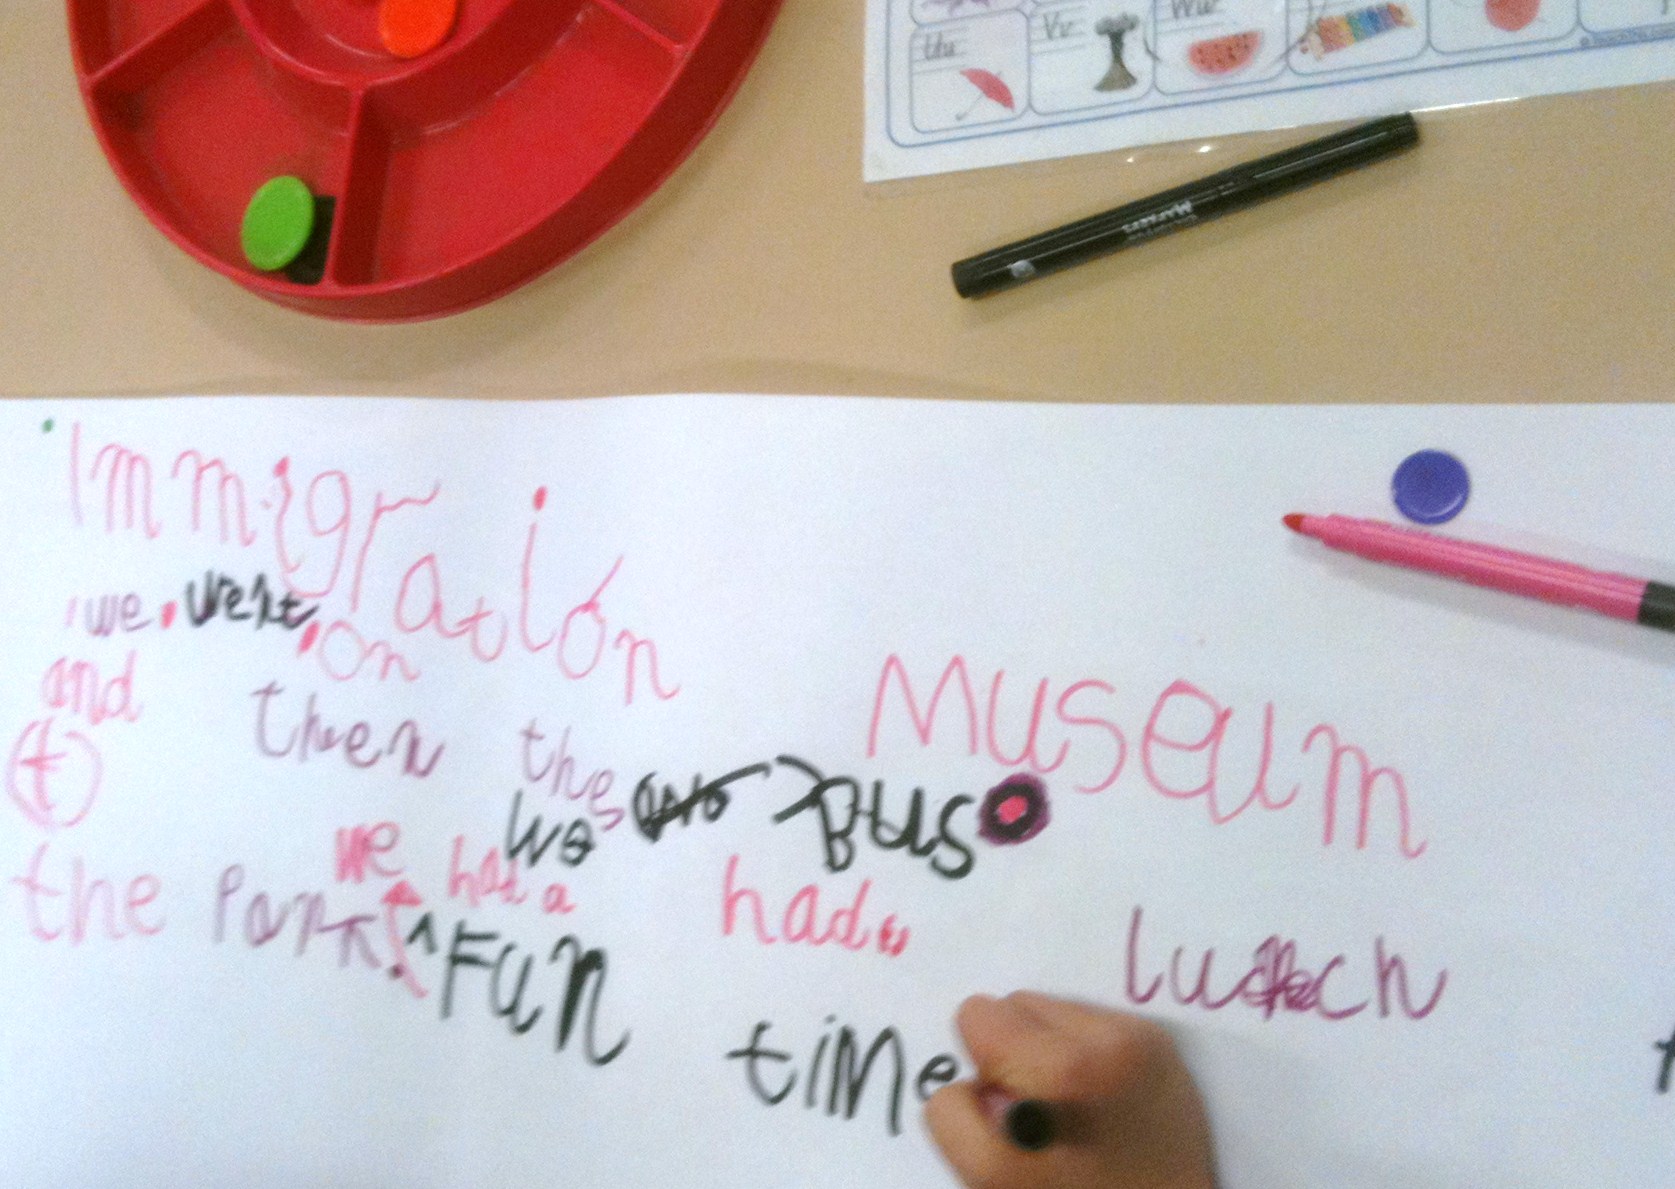 Uu Vv Ww
MARKERS
Immigration
Museum
we went on
and then the Bus
t we
the Park we had a had lunch
FUN time